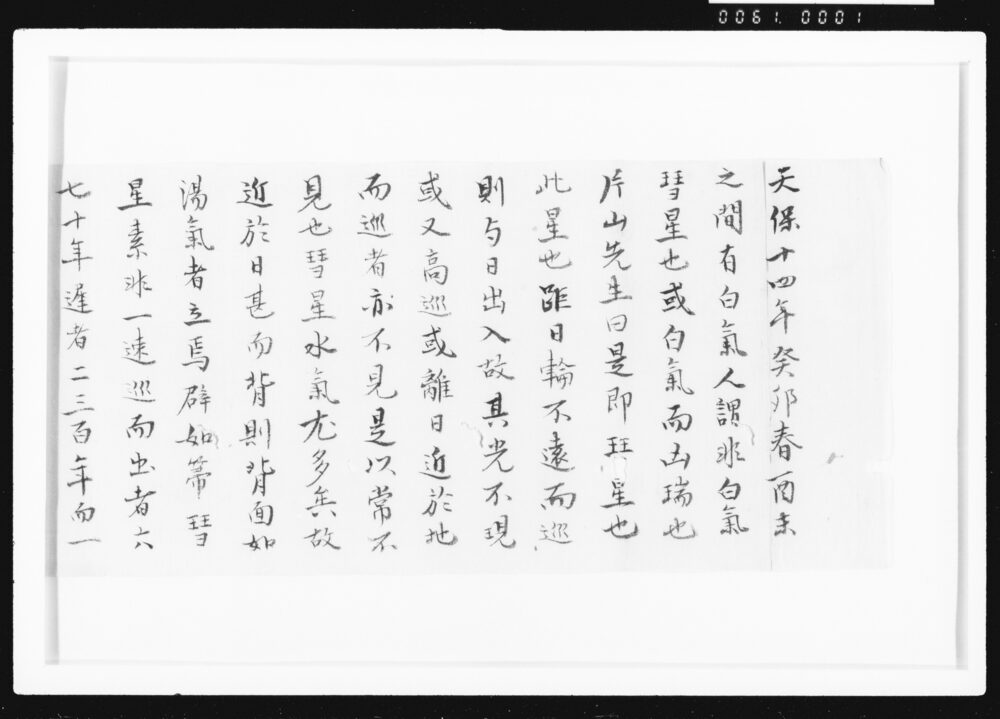 0061.0001
天保十四年癸卯春酉未
之間有白氣人謂非白氣
彗星也或白氣而凶瑞也
片山先生曰是即彗星也
此星也距日輪不遠而巡
則与日出入故其光不現
或又高巡或離日近於地
而巡者亦不見是以常不
見也彗星水氣尤多矣故
近於日甚而背則背面如
湯氣者立焉辟如箒彗
星素非一速巡而出者六
七十年遅者二三百年而一